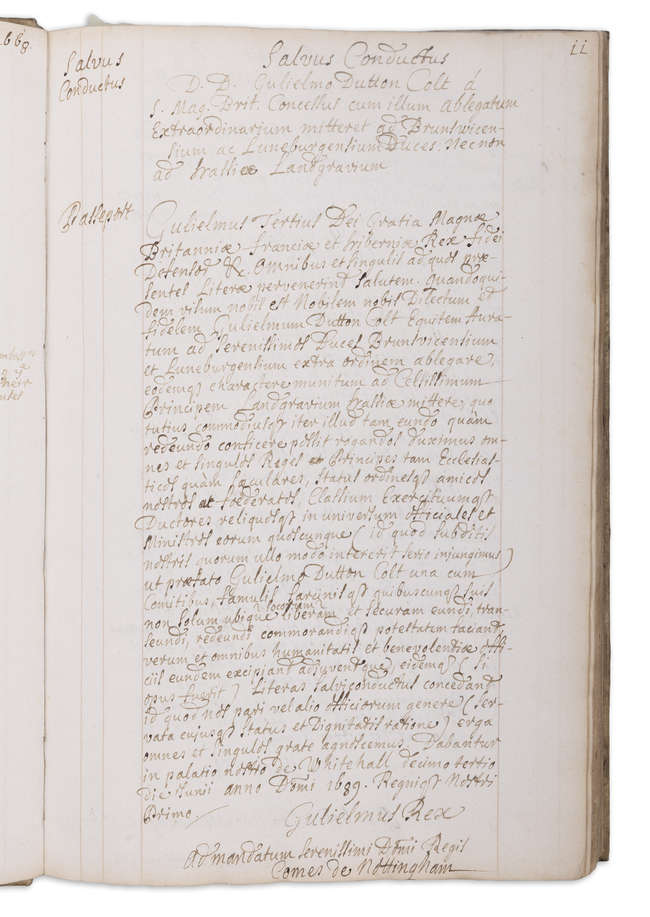 668.
11
Salvus
Conductus
Salvus Conductus
D. D. Gulielmo Dutton Colt á
S. Mag. Brit. Concessus cum illum Ablegatum
Extraordinarium mitteret ad Brunswicen-
sium ac Luneburgensium Duces. Necnon
ad Hassiæ Landgravium
Passeport
Gulielmus Tertius Dei Gratia Magnæ
Britanniæ Franciæ et Hiberniæ Rex Fidei
Defensor &c. Omnibus et singulis ad quos præ-
sentes Literæ pervenerint Salutem. Quandoqui-
dem visum nobis est Nobilem nobis Dilectum et
fidelem Gulielmum Dutton Colt Equitem Aura-
tum ad Serenissimos Duces Brunsvicensium
et Luneburgensium extra ordinem ablegare,
eodemqȝ charactere munitum ad Celsissimum
Principem Landgravium Hassiæ mittere, quo
tutius commodiusqȝ iter illud tam eundo quàm
redeundo conficere possit rogandos duximus om-
nes et singulos Reges et Principes tam Ecclesias-
ticos quam sæculares, Status ordinesqȝ amicos
nostros at fœderatos, Classium Exercituumqȝ
Ductores reliquosqȝ in universum officiales et
Ministros eorum quoscunque (id quod subditis
nostris quorum ullo modo intererit serio injungimus)
ut præfato Gulielmo Dutton Colt una cum
Comitibus, famulis sarcinisqȝ quibuscunqȝ suis
non solum ubique locorum liberam et securam eundi, tran-
seundi, redeundi commorandiqȝ potestatem faciant,
verum et omnibus humanitatis et benevolentiæ offi-
ciis eundem excipiant adjuventque, eidemqȝ (si
opus fuerit) Literas salvi conductus concedant
id quod nos pari vel alio officiorum genere (ser-
vata cujusqȝ status et Dignitatis ratione) erga
omnes et singulos grate agnoscemus. Dabantur
in palatio nostro de Whitehall decimo tertio
die Junii anno Dōmi 1689. Regniqȝ Nostri
Primo
Gulielmus Rex
Ad mandatum Serenissimi Dōmi Regis
Comes de Nottingham